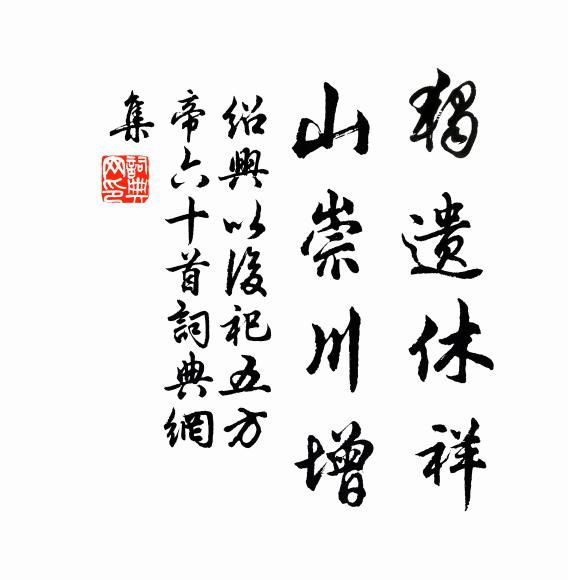 獨遗休祥
山崇川增
紹興以後祀五方
帝六十首詞典網
集
詞典
网印